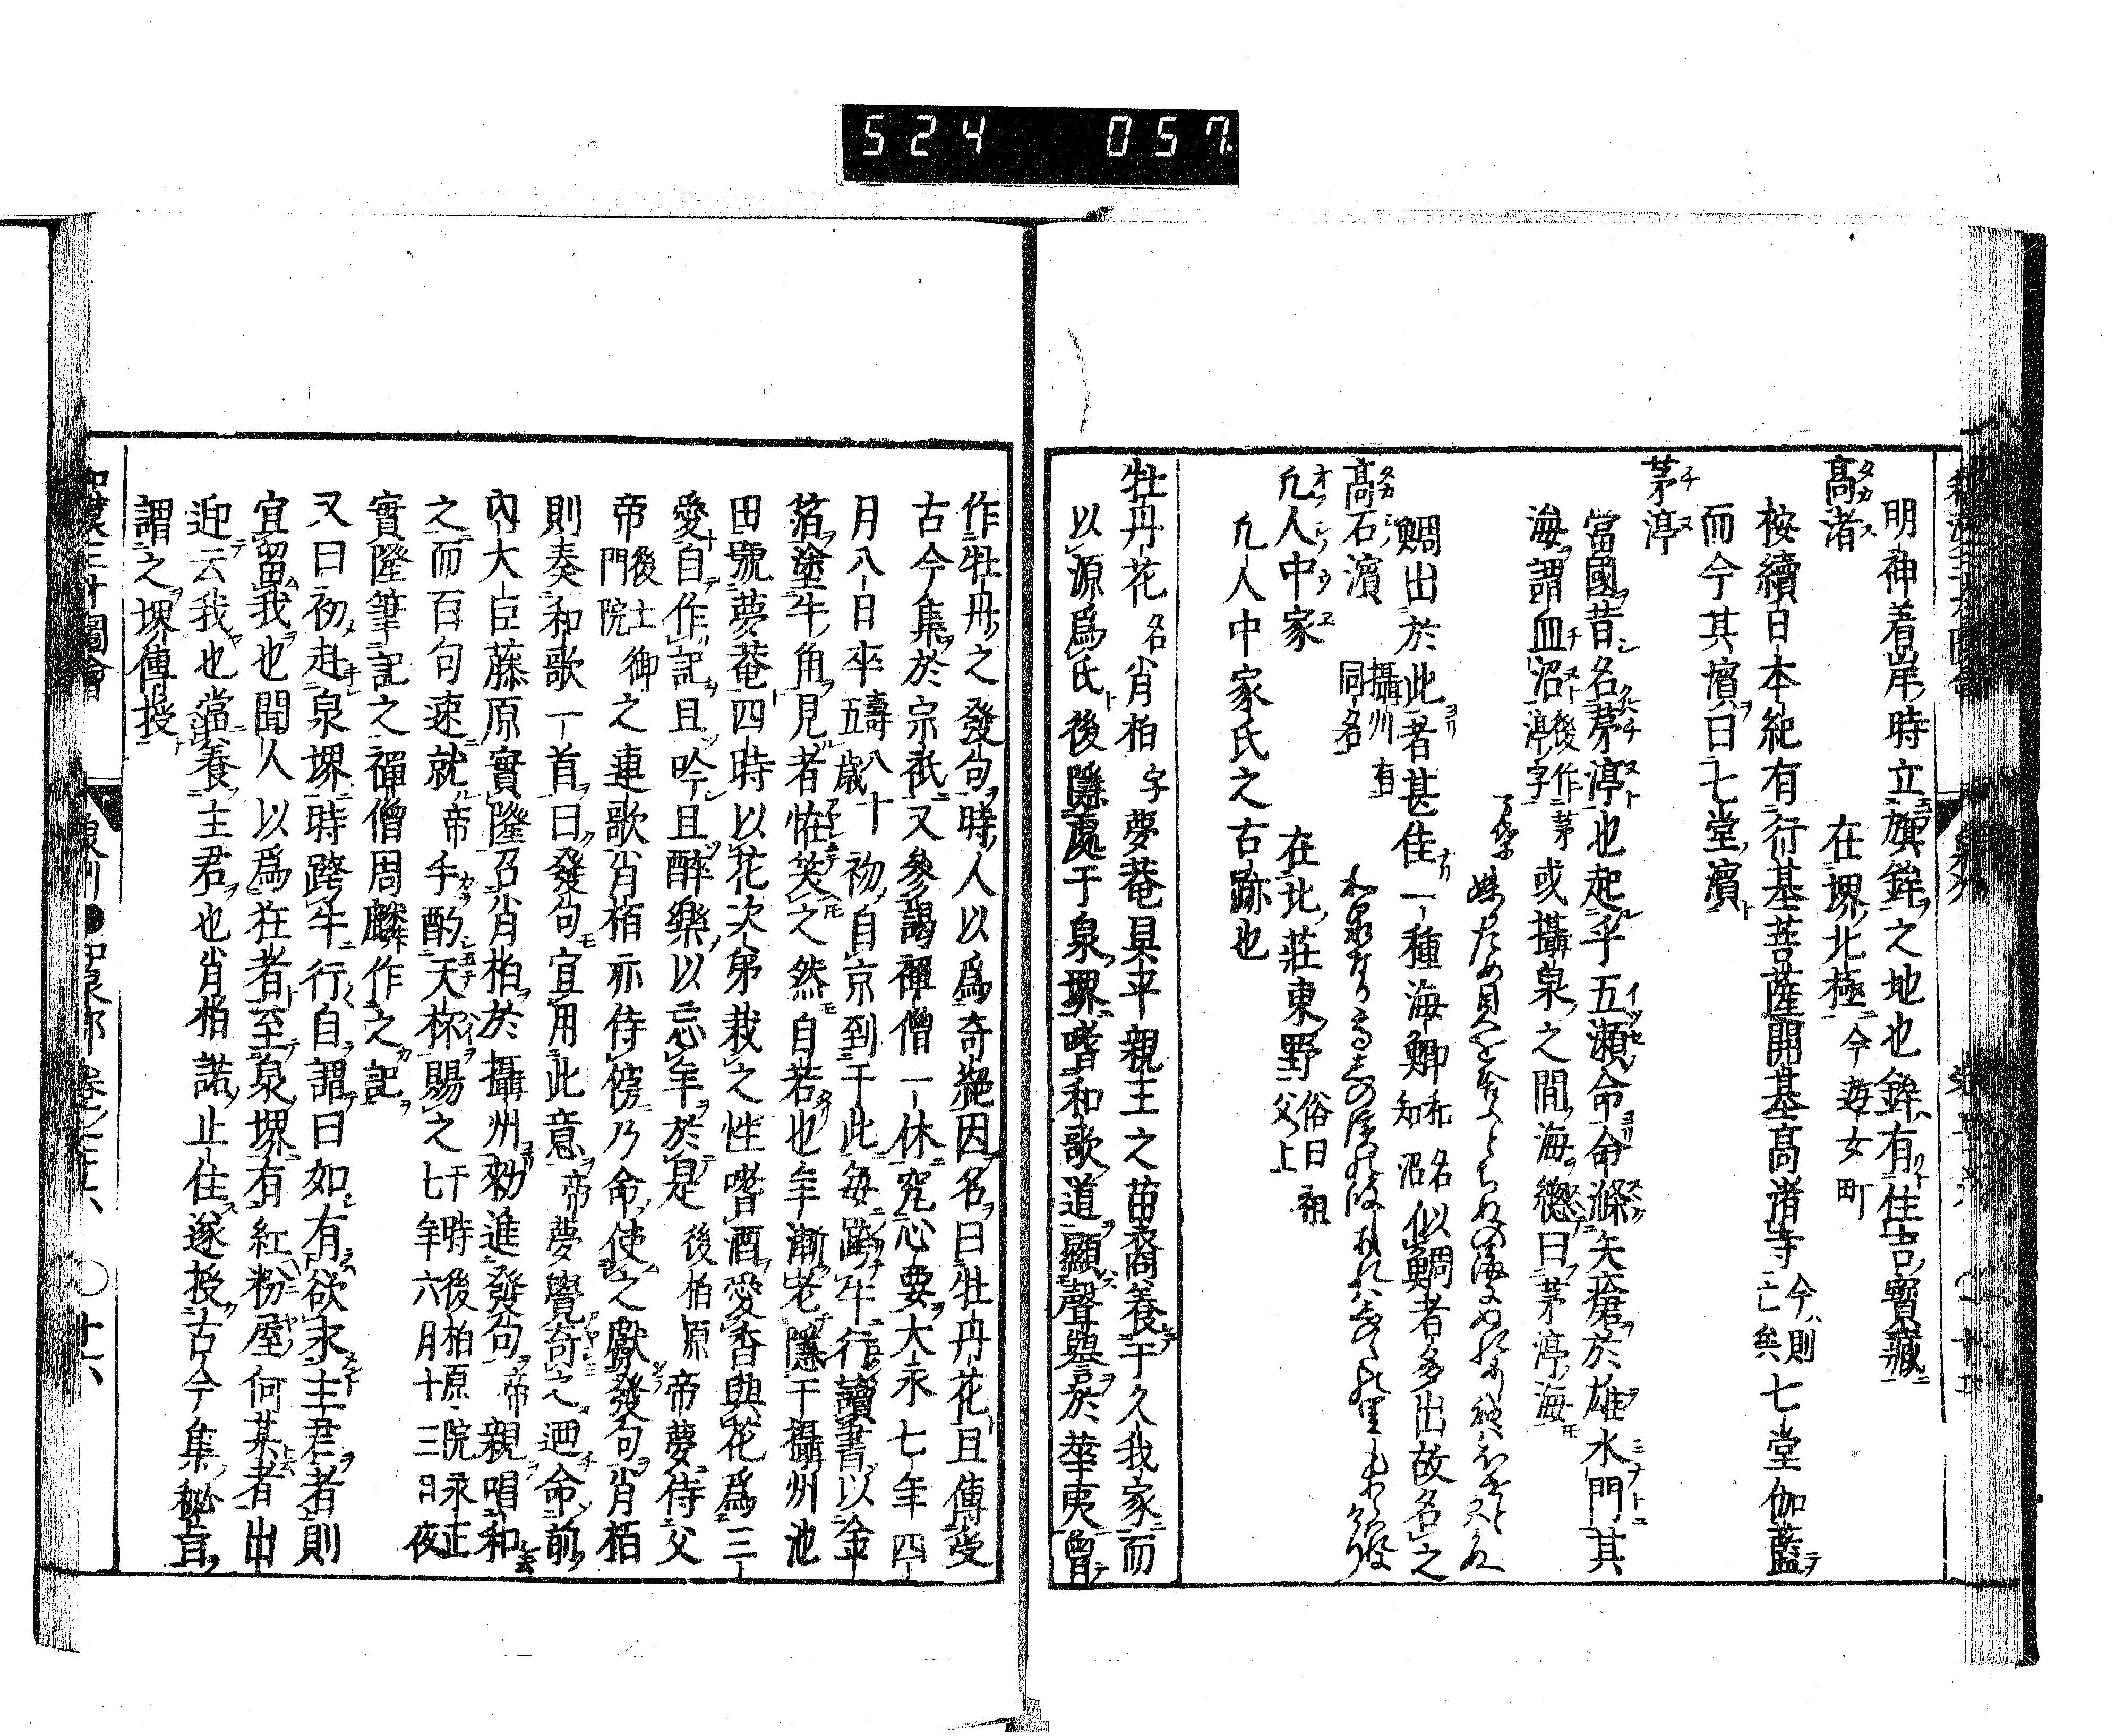 524 057
明神着岸時立旗鉾之地也鉾有住吉寶藏
高渚 在堺北極今遊女町
桉續日本紀有行基菩薩開基高渚寺今則亡矣七堂伽藍
而今其濱曰七堂濱
茅渟
當國昔名茅渟也起乎五瀬命命滌矢瘡於雄水門其
海謂血沼後作茅渟字或攝泉之間海總曰茅渟海
鯛出於此者甚佳一種海鯽和名知沼似鯛者多出故名之
高石濱 攝州有同名
凢人中家 在北莊東野俗曰祖父上
凢人中家氏之古跡也
牡丹花 名肖柏字夢菴具平親王之苗裔養于久我家而
以源爲氏後隱處于泉堺嗜和歌道顯聲譽於華夷曾
作牡丹之發句時人以爲奇絕因名曰牡丹花且傳受
古今集於宗祇又參謁禪僧一休究心要大永七年四
月八日卒壽八十五歳初自京到于此每跨牛行讀書以金
箔塗牛角見者恠笑之然自若也年漸老隱于攝州池
田號夢菴四時以花次第栽之性嗜酒愛香與花爲三
愛自作記且吟且醉樂以忘年於是後柏原帝夢侍父
帝後土御門院之連歌肖柏亦侍傍乃命使之獻發句肖栢
則奏和歌一首曰發句宜用此意帝夢覺奇之迺命前
內大臣藤原實隆召肖柏於攝州勑進發句帝親唱和
之而百句速就帝手酌天杯賜之于時後柏原院永正七年六月十三日夜
實隆筆記之禪僧周麟作之記
又曰初赴泉堺時跨牛行自謂曰如有欲求主君者則
宜留我也聞人以爲狂者至泉堺有紅粉屋何某者出
迎云我也當養主君也肖柏諾止住遂授古今集秘旨
謂之堺傳授